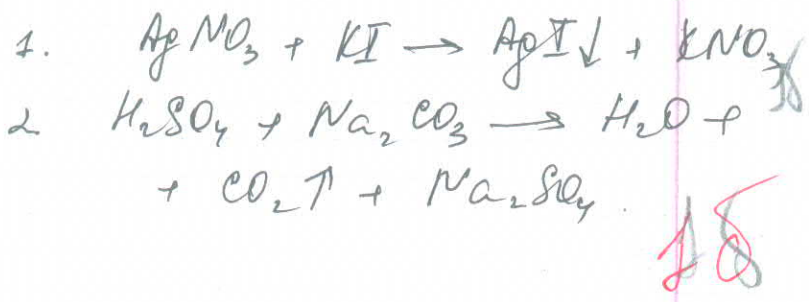 1. AgNO₃ + KI → AgI↓ + KNO₃
2. H₂SO₄ + Na₂CO₃ → H₂O +
+ CO₂↑ + Na₂SO₄.
1б